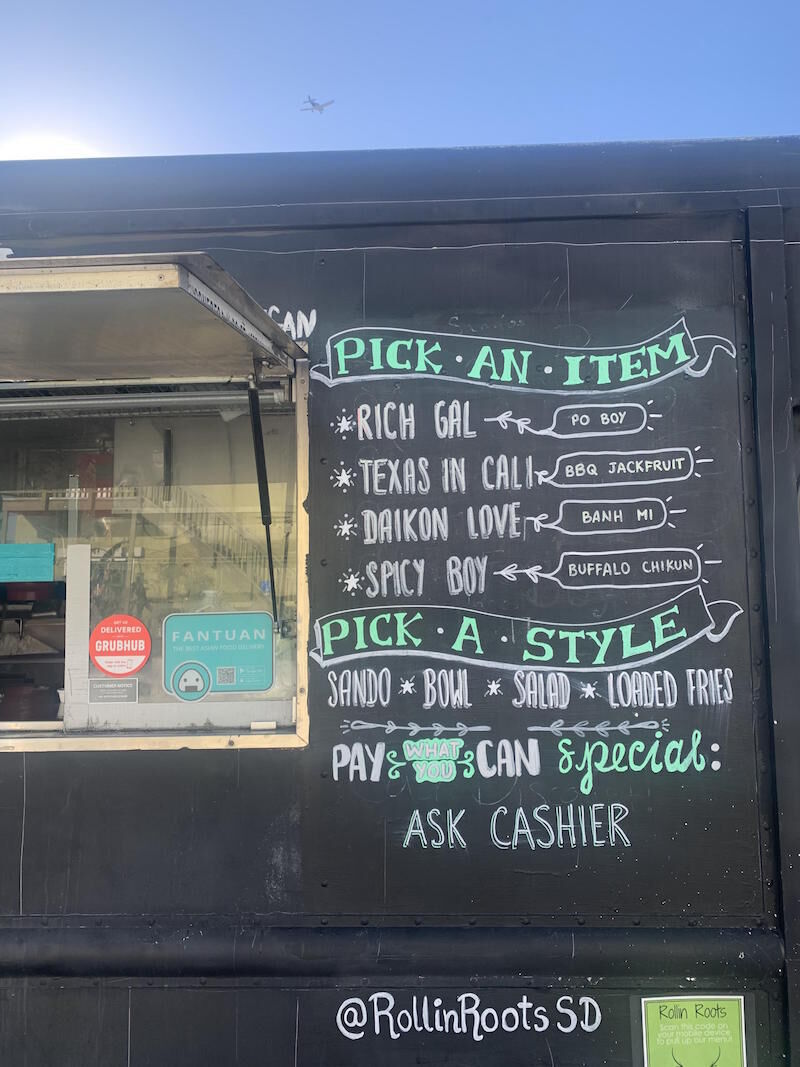 CAN
PICK · AN · ITEM
RICH GAL PO BOY
TEXAS IN CALI BBQ JACKFRUIT
DAIKON LOVE BANH MI
SPICY BOY BUFFALO CHIKUN
PICK · A · STYLE
SANDO * BOWL * SALAD * LOADED FRIES
PAY WHAT YOU CAN special:
ASK CASHIER
@RollinRootsSD
GET US
DELIVERED
GRUBHUB
CUSTOMER NOTICE
FANTUAN
THE BEST ASIAN FOOD DELIVERY
Rollin Roots
Scan this code on
your mobile device
to pull up our menu!